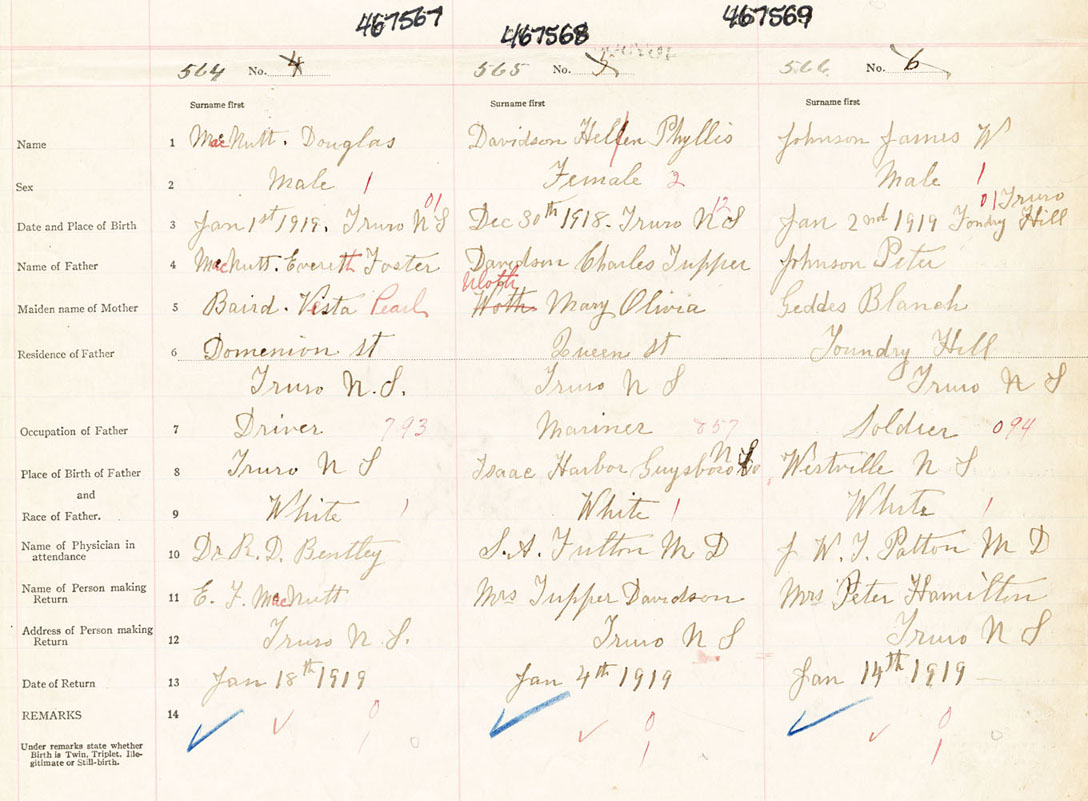 467567 467568 467569
564 No. 4 565 No. 5 566 No. 6
Surname first Surname first Surname first
Name 1 MacNutt. Douglas Davidson Hellen Phyllis Johnson James W
Sex 2 Male 1 Female 2 Male 1
01 12 01 Truro
Date and Place of Birth 3 Jan 1st 1919. Truro N S Dec 30th 1918. Truro N S Jan 2nd 1919 Foundry Hill
Name of Father 4 MacNutt. Everett Foster Davidson Charles Tupper Johnson Peter
Maiden name of Mother 5 Baird. Vesta Pearl Woth Mary Olivia Geddes Blanch
Residence of Father 6 Domenion st Queen st Foundry Hill
Truro N.S. Truro N S Truro N S
Occupation of Father 7 Driver 793 Mariner 857 Soldier 094
Place of Birth of Father 8 Truro N S Isaac Harbor Guysboro N S Westville N S
and
Race of Father. 9 White 1 White 1 White 1
Name of Physician in attendance 10 Dr R. D. Bentley S. A. Fulton M D J W. T. Patton M D
Name of Person making Return 11 E. F. MacNutt Mrs Tupper Davidson Mrs Peter Hamilton
Address of Person making Return 12 Truro N. S. Truro N S Truro N S
Date of Return 13 Jan 18th 1919 Jan 4th 1919 Jan 14th 1919
REMARKS 14 0 0 0
1 1 1
Under remarks state whether
Birth is Twin, Triplet, Ille-
gitimate or Still-birth.